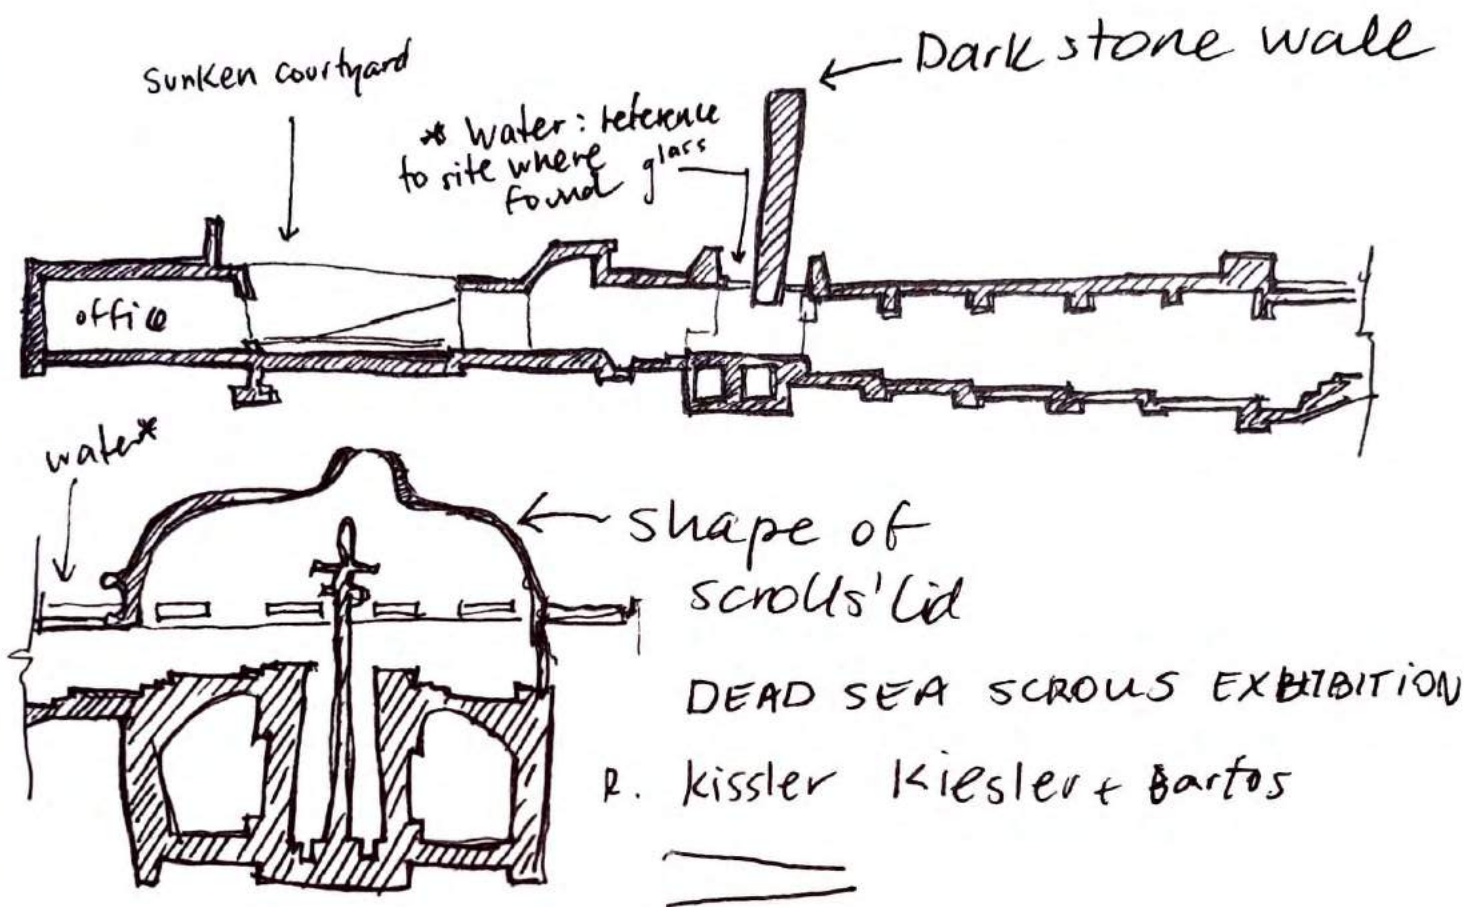 Dark stone wall
Sunken courtyard
* Water: reference
to site where
found
glass
office
water*
shape of
scrolls' lid
DEAD SEA SCROLLS EXHIBITION
R. Kissler Kiesler + Bartos